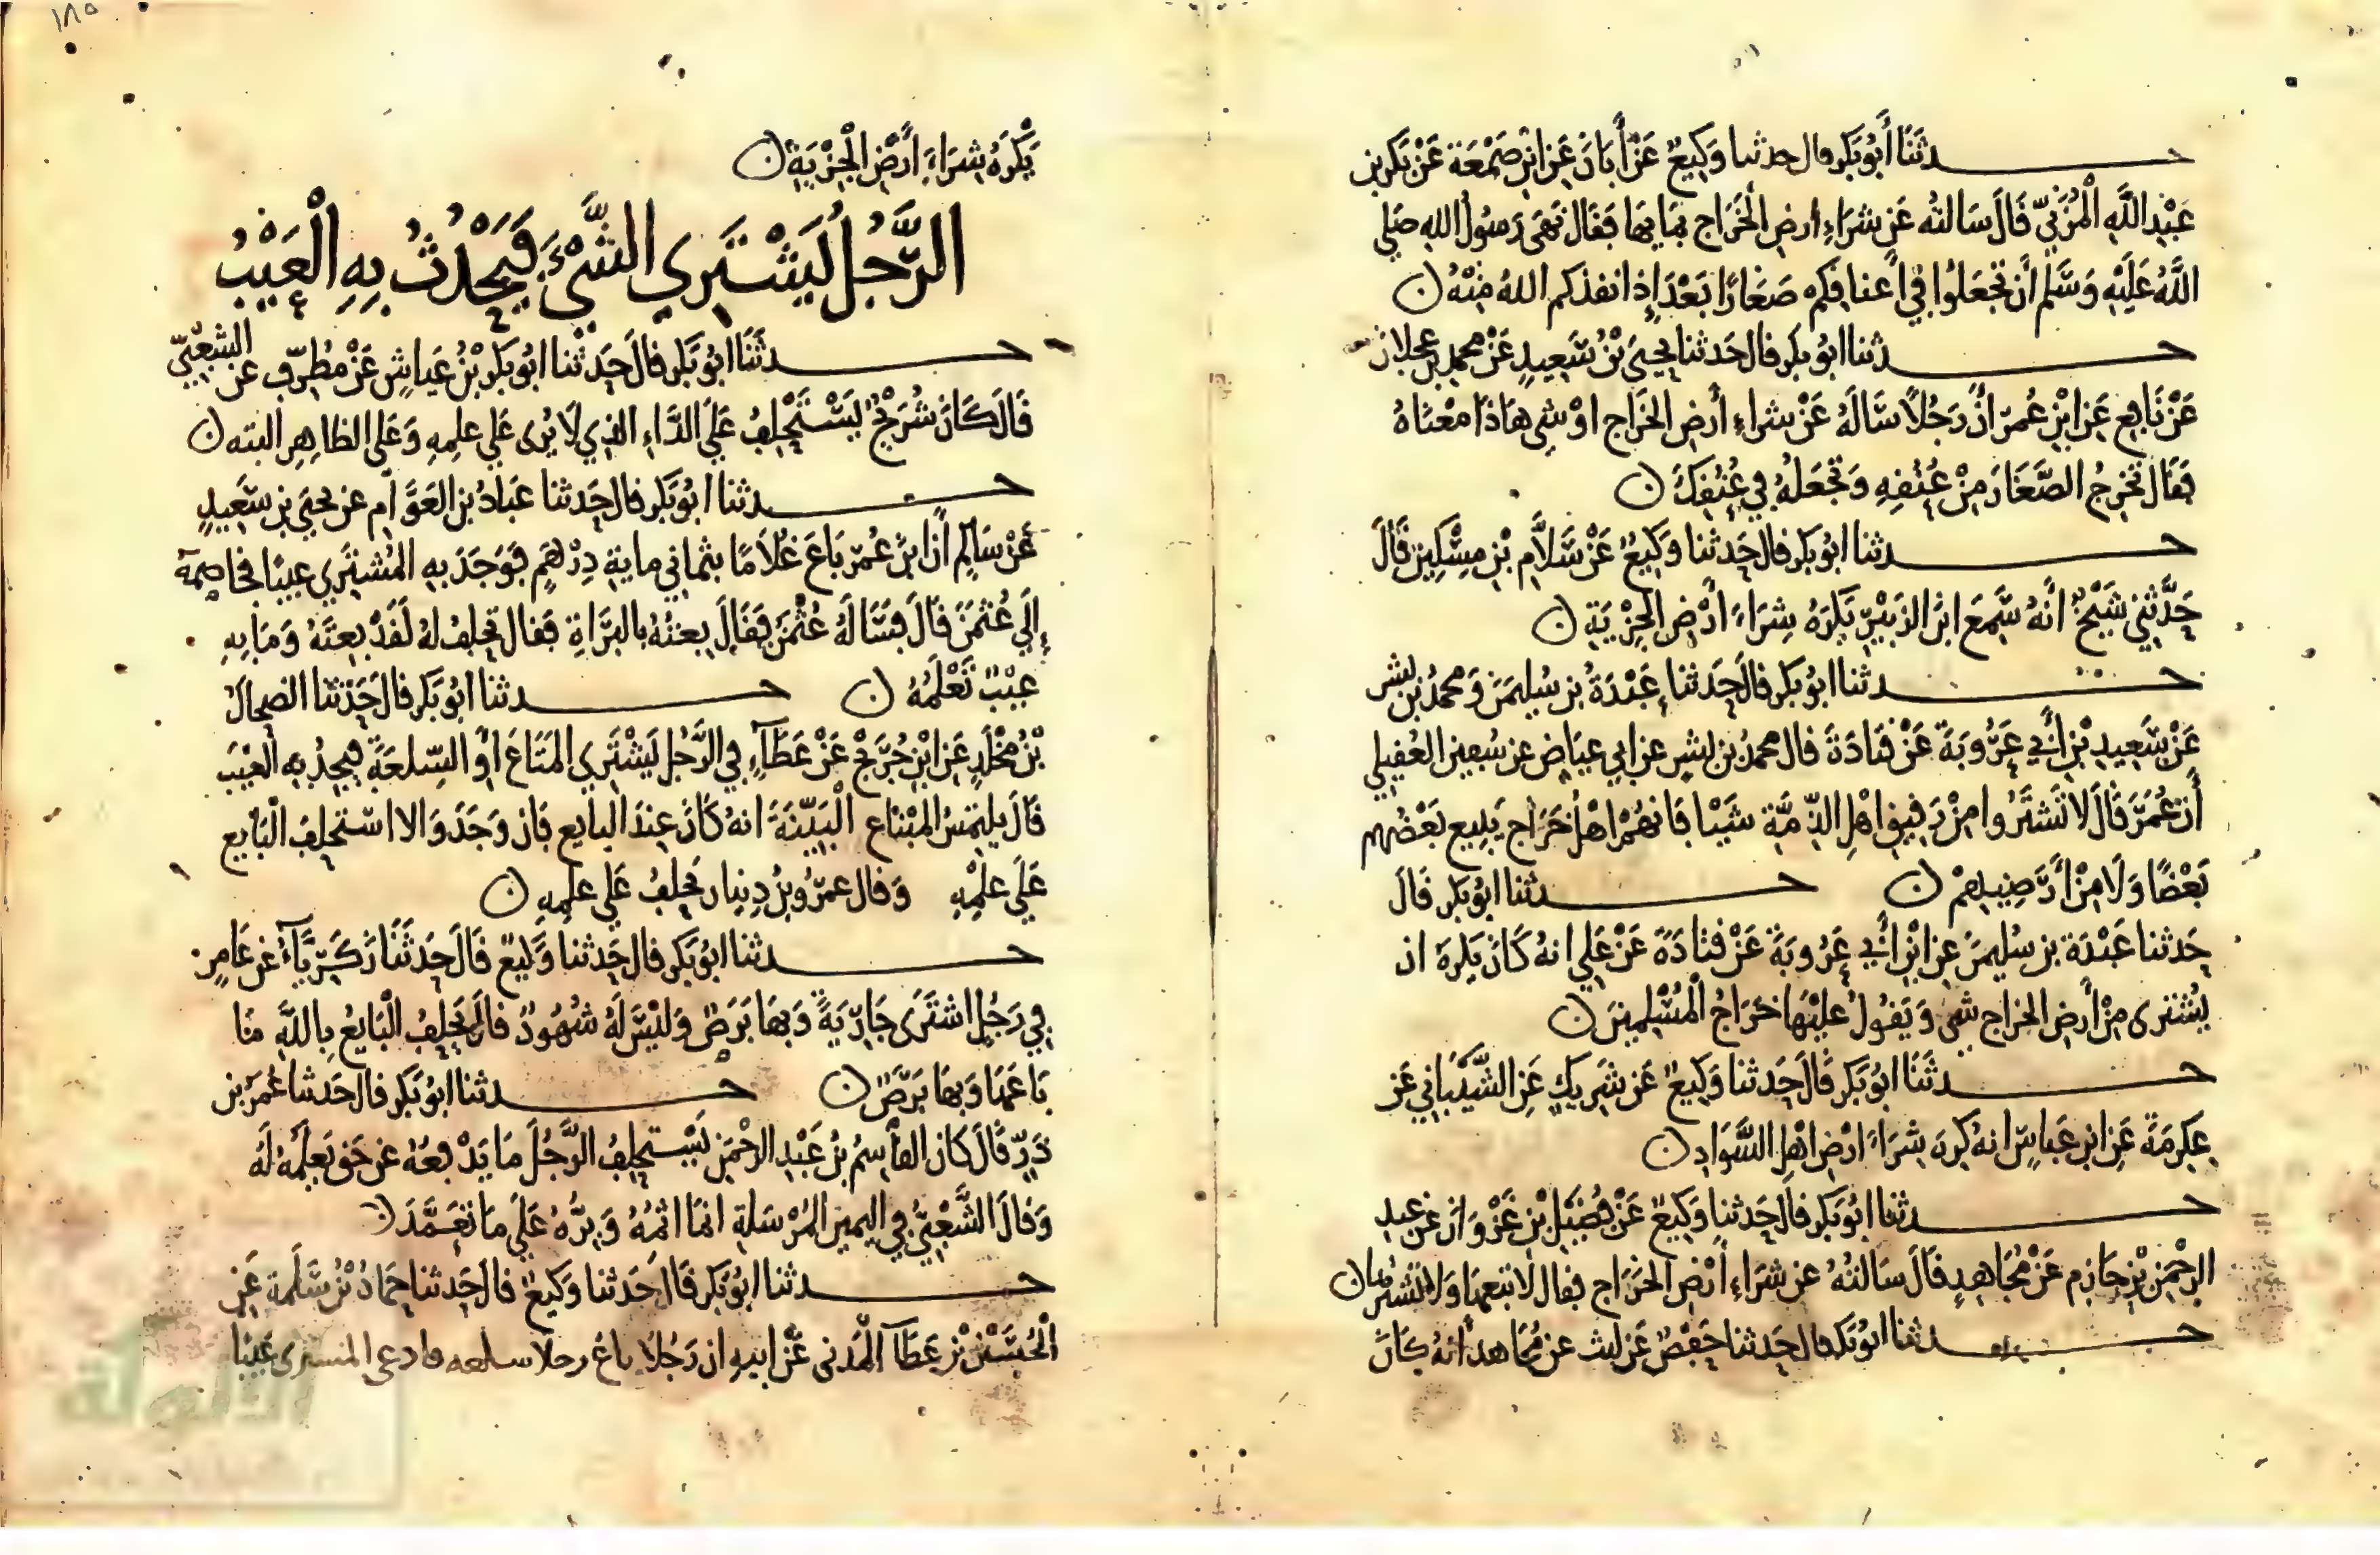 حدثنا أبو بكر قال حدثنا وكيع عن أبان عن ابن صمعة عن بكر بن
عبد الله المزني قال سالته عن شراء ارض الخراج بمايها فقال نهى رسول الله صلي
الله عليه وسلم أن تجعلوا في اعناقكم صغارا بعد إذ انقذكم الله منه ن
حدثنا ابو بكر قال حدثنا يحيى بن سعيد عن محمد بن عجلان
عن نافع عن ابن عمر ان رجلا ساله عن شراء أرض الخراج او شي هاذا معناه
فقال تخرج الصغار من عنقه وتجعله في عنقك ن
حدثنا ابو بكر قال حدثنا وكيع عن سلام بن مسكين قال
حدثني شيخ أنه سمع ابن الزبير يكره شراء أرض الجزية ن
حدثنا ابو بكر قال حدثنا عبدة بن سليمن ومحمد بن بشر
عن سعيد بن أبي عروبة عن قتادة قال محمد بن بشر عن ابي عياض عن سفين العقيلي
أن عمر قال لا تشتروا من رقيق اهل الذمة شيا فانهم اهل خراج يبيع بعضهم
بعضا ولا من أرضيهم ن حدثنا ابو بكر قال
حدثنا عبدة بن سليمن عن ابن أبي عروبة عن قتادة عن علي انه كان يكره ان
يشترى من أرض الخراج شي ويقول عليها خراج المسلمين ن
حدثنا ابو بكر قال حدثنا وكيع عن شريك عن الشيباني عن
عكرمة عن ابن عباس انه كره شراء ارض اهل السواد ن
حدثنا ابو بكر قال حدثنا وكيع عن فضيل بن غزوان عن عبد
الرحمن بن حازم عن مجاهد قال سالته عن شراء أرض الخراج فقال لا تبعها ولا تشترها ن
حدثنا ابو بكر قال حدثنا حفص عن ليث عن مجاهد انه كان
١٨٥
يكره شراء أرض الجزية ن
الرجل يشتري الشيء فيحدث به العيب
حدثنا ابو بكر قال حدثنا ابو بكر بن عياش عن مطرف عن الشعبي
قال كان شريح يستحلف علي الداء الذي لا يرى علي علمه وعلى الظاهر البته ن
حدثنا ابو بكر قال حدثنا عباد بن العوام عن يحيى بن سعيد
عن سالم أن ابن عمر باع غلاما بثماني ماية درهم فوجد به المشتري عيبا فخاصمه
إلي عثمن قال فساله عثمن فقال بعته بالبراة فقال تحلف له لقد بعته وما به
عيب تعلمه ن حدثنا ابو بكر قال حدثنا الضحاك
بن مخلد عن ابن جريج عن عطاء في الرجل يشتري المتاع او السلعة فيجد به العيب
قال يلتمس المبتاع البينة انه كان عند البايع فان وجد والا استحلف البايع
علي علمه وقال عمرو بن دينار يحلف علي علمه ن
حدثنا ابو بكر قال حدثنا وكيع قال حدثنا زكرياء عن عامر
في رجل اشترى جارية وبها برص وليس له شهود قال يحلف البايع بالله ما
باعها وبها برص ن حدثنا ابو بكر قال حدثنا عمر بن
ذر قال كان القاسم بن عبد الرحمن يستحلف الرجل ما يدفعه عن حق يعلمه له
وقال الشعبي في اليمين المرسلة انما اثمه وبره علي ما تعمد ن
حدثنا ابو بكر قال حدثنا وكيع قال حدثنا حماد بن سلمة عن
الحسن بن عطاء المدني عن ابيه ان رجلا باع رجلا سلعه فادعى المشترى عيبا
الألوكة